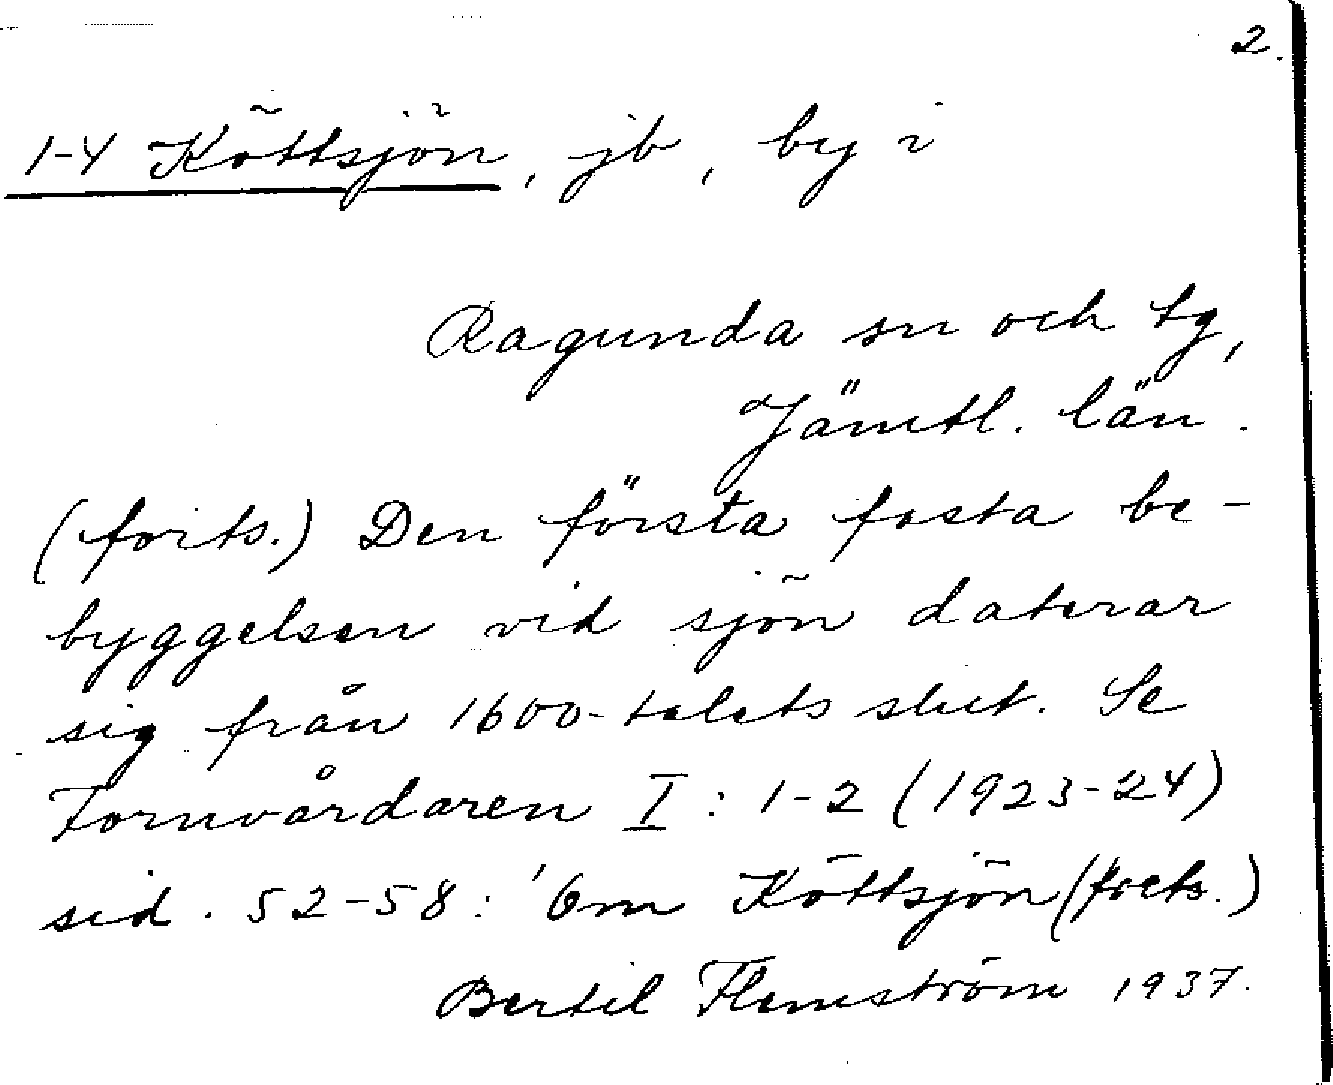 2.
1-4 Köttsjön, jb, by i
Ragunda sn och tg,
Jämtl. län.
(forts.) Den första fasta be-
byggelsen vid sjön daterar
sig från 1600-talets slut. Se
Fornvårdaren I: 1-2 (1923-24)
sid. 52-58: 'Om Köttsjön (forts.)
Bertil Flemström 1937.